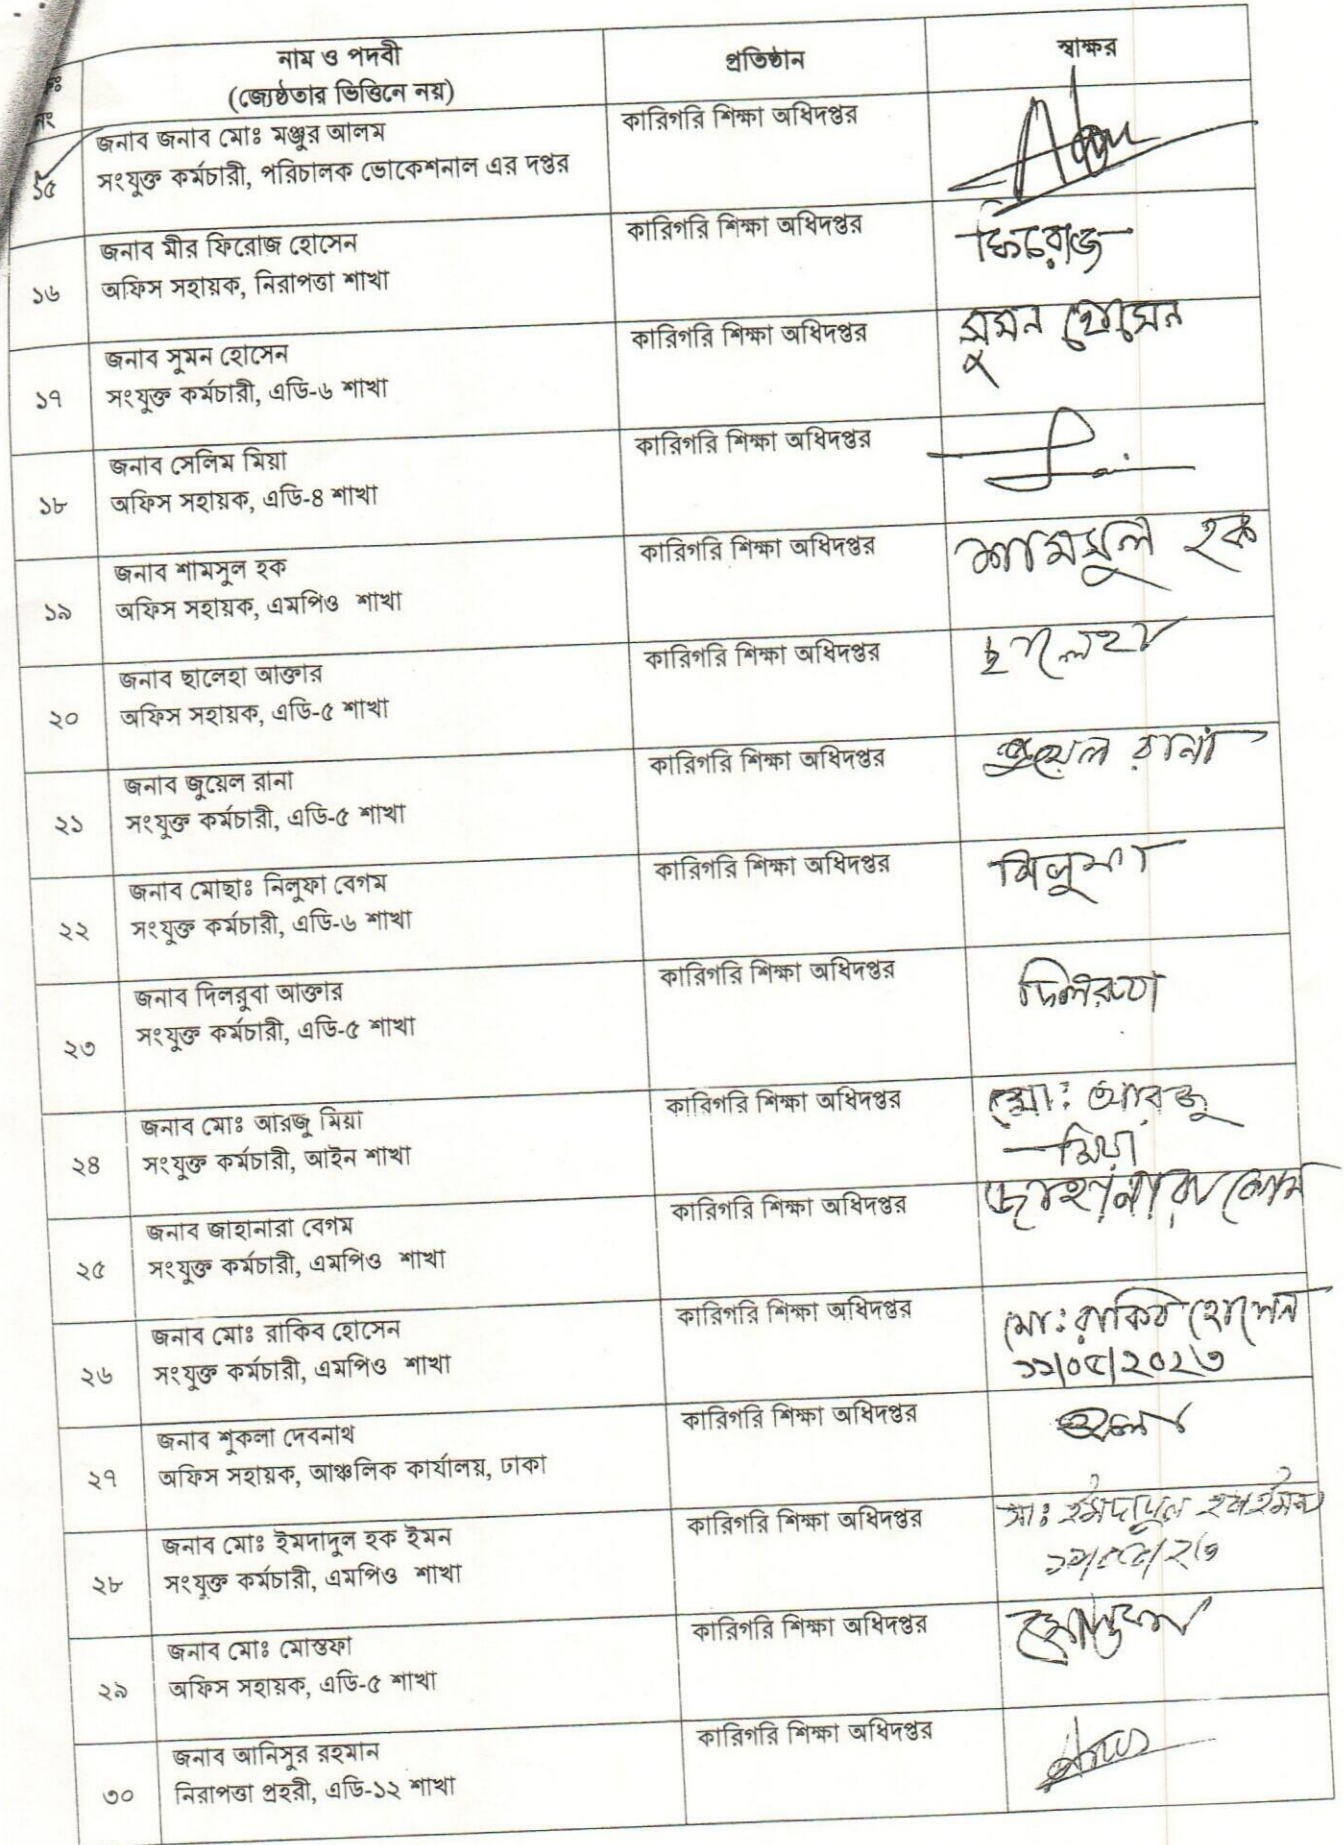 নাম ও পদবী
(জ্যেষ্ঠতার ভিত্তিনে নয়)
প্রতিষ্ঠান
স্বাক্ষর
নং
১৫
জনাব জনাব মোঃ মঞ্জুর আলম
সংযুক্ত কর্মচারী, পরিচালক ভোকেশনাল এর দপ্তর
কারিগরি শিক্ষা অধিদপ্তর
১৬
জনাব মীর ফিরোজ হোসেন
অফিস সহায়ক, নিরাপত্তা শাখা
কারিগরি শিক্ষা অধিদপ্তর
ফিরোজ
১৭
জনাব সুমন হোসেন
সংযুক্ত কর্মচারী, এডি-৬ শাখা
কারিগরি শিক্ষা অধিদপ্তর
সুমন হোসেন
১৮
জনাব সেলিম মিয়া
অফিস সহায়ক, এডি-৪ শাখা
কারিগরি শিক্ষা অধিদপ্তর
১৯
জনাব শামসুল হক
অফিস সহায়ক, এমপিও শাখা
কারিগরি শিক্ষা অধিদপ্তর
শামসুল হক
২০
জনাব ছালেহা আক্তার
অফিস সহায়ক, এডি-৫ শাখা
কারিগরি শিক্ষা অধিদপ্তর
ছালেহা
২১
জনাব জুয়েল রানা
সংযুক্ত কর্মচারী, এডি-৫ শাখা
কারিগরি শিক্ষা অধিদপ্তর
জুয়েল রানা
২২
জনাব মোছাঃ নিলুফা বেগম
সংযুক্ত কর্মচারী, এডি-৬ শাখা
কারিগরি শিক্ষা অধিদপ্তর
নিলুফা
২৩
জনাব দিলরুবা আক্তার
সংযুক্ত কর্মচারী, এডি-৫ শাখা
কারিগরি শিক্ষা অধিদপ্তর
দিলরুবা
২৪
জনাব মোঃ আরজু মিয়া
সংযুক্ত কর্মচারী, আইন শাখা
কারিগরি শিক্ষা অধিদপ্তর
মো: আরজু
মিয়া
২৫
জনাব জাহানারা বেগম
সংযুক্ত কর্মচারী, এমপিও শাখা
কারিগরি শিক্ষা অধিদপ্তর
জাহানারা বেগম
২৬
জনাব মোঃ রাকিব হোসেন
সংযুক্ত কর্মচারী, এমপিও শাখা
কারিগরি শিক্ষা অধিদপ্তর
মো: রাকিব হোসেন
১১/০৫/২০২৩
২৭
জনাব শুকলা দেবনাথ
অফিস সহায়ক, আঞ্চলিক কার্যালয়, ঢাকা
কারিগরি শিক্ষা অধিদপ্তর
২৮
জনাব মোঃ ইমদাদুল হক ইমন
সংযুক্ত কর্মচারী, এমপিও শাখা
কারিগরি শিক্ষা অধিদপ্তর
মো: ইমদাদুল হক ইমন
১১/০৫/২৩
২৯
জনাব মোঃ মোস্তফা
অফিস সহায়ক, এডি-৫ শাখা
কারিগরি শিক্ষা অধিদপ্তর
মোস্তফা
৩০
জনাব আনিসুর রহমান
নিরাপত্তা প্রহরী, এডি-১২ শাখা
কারিগরি শিক্ষা অধিদপ্তর